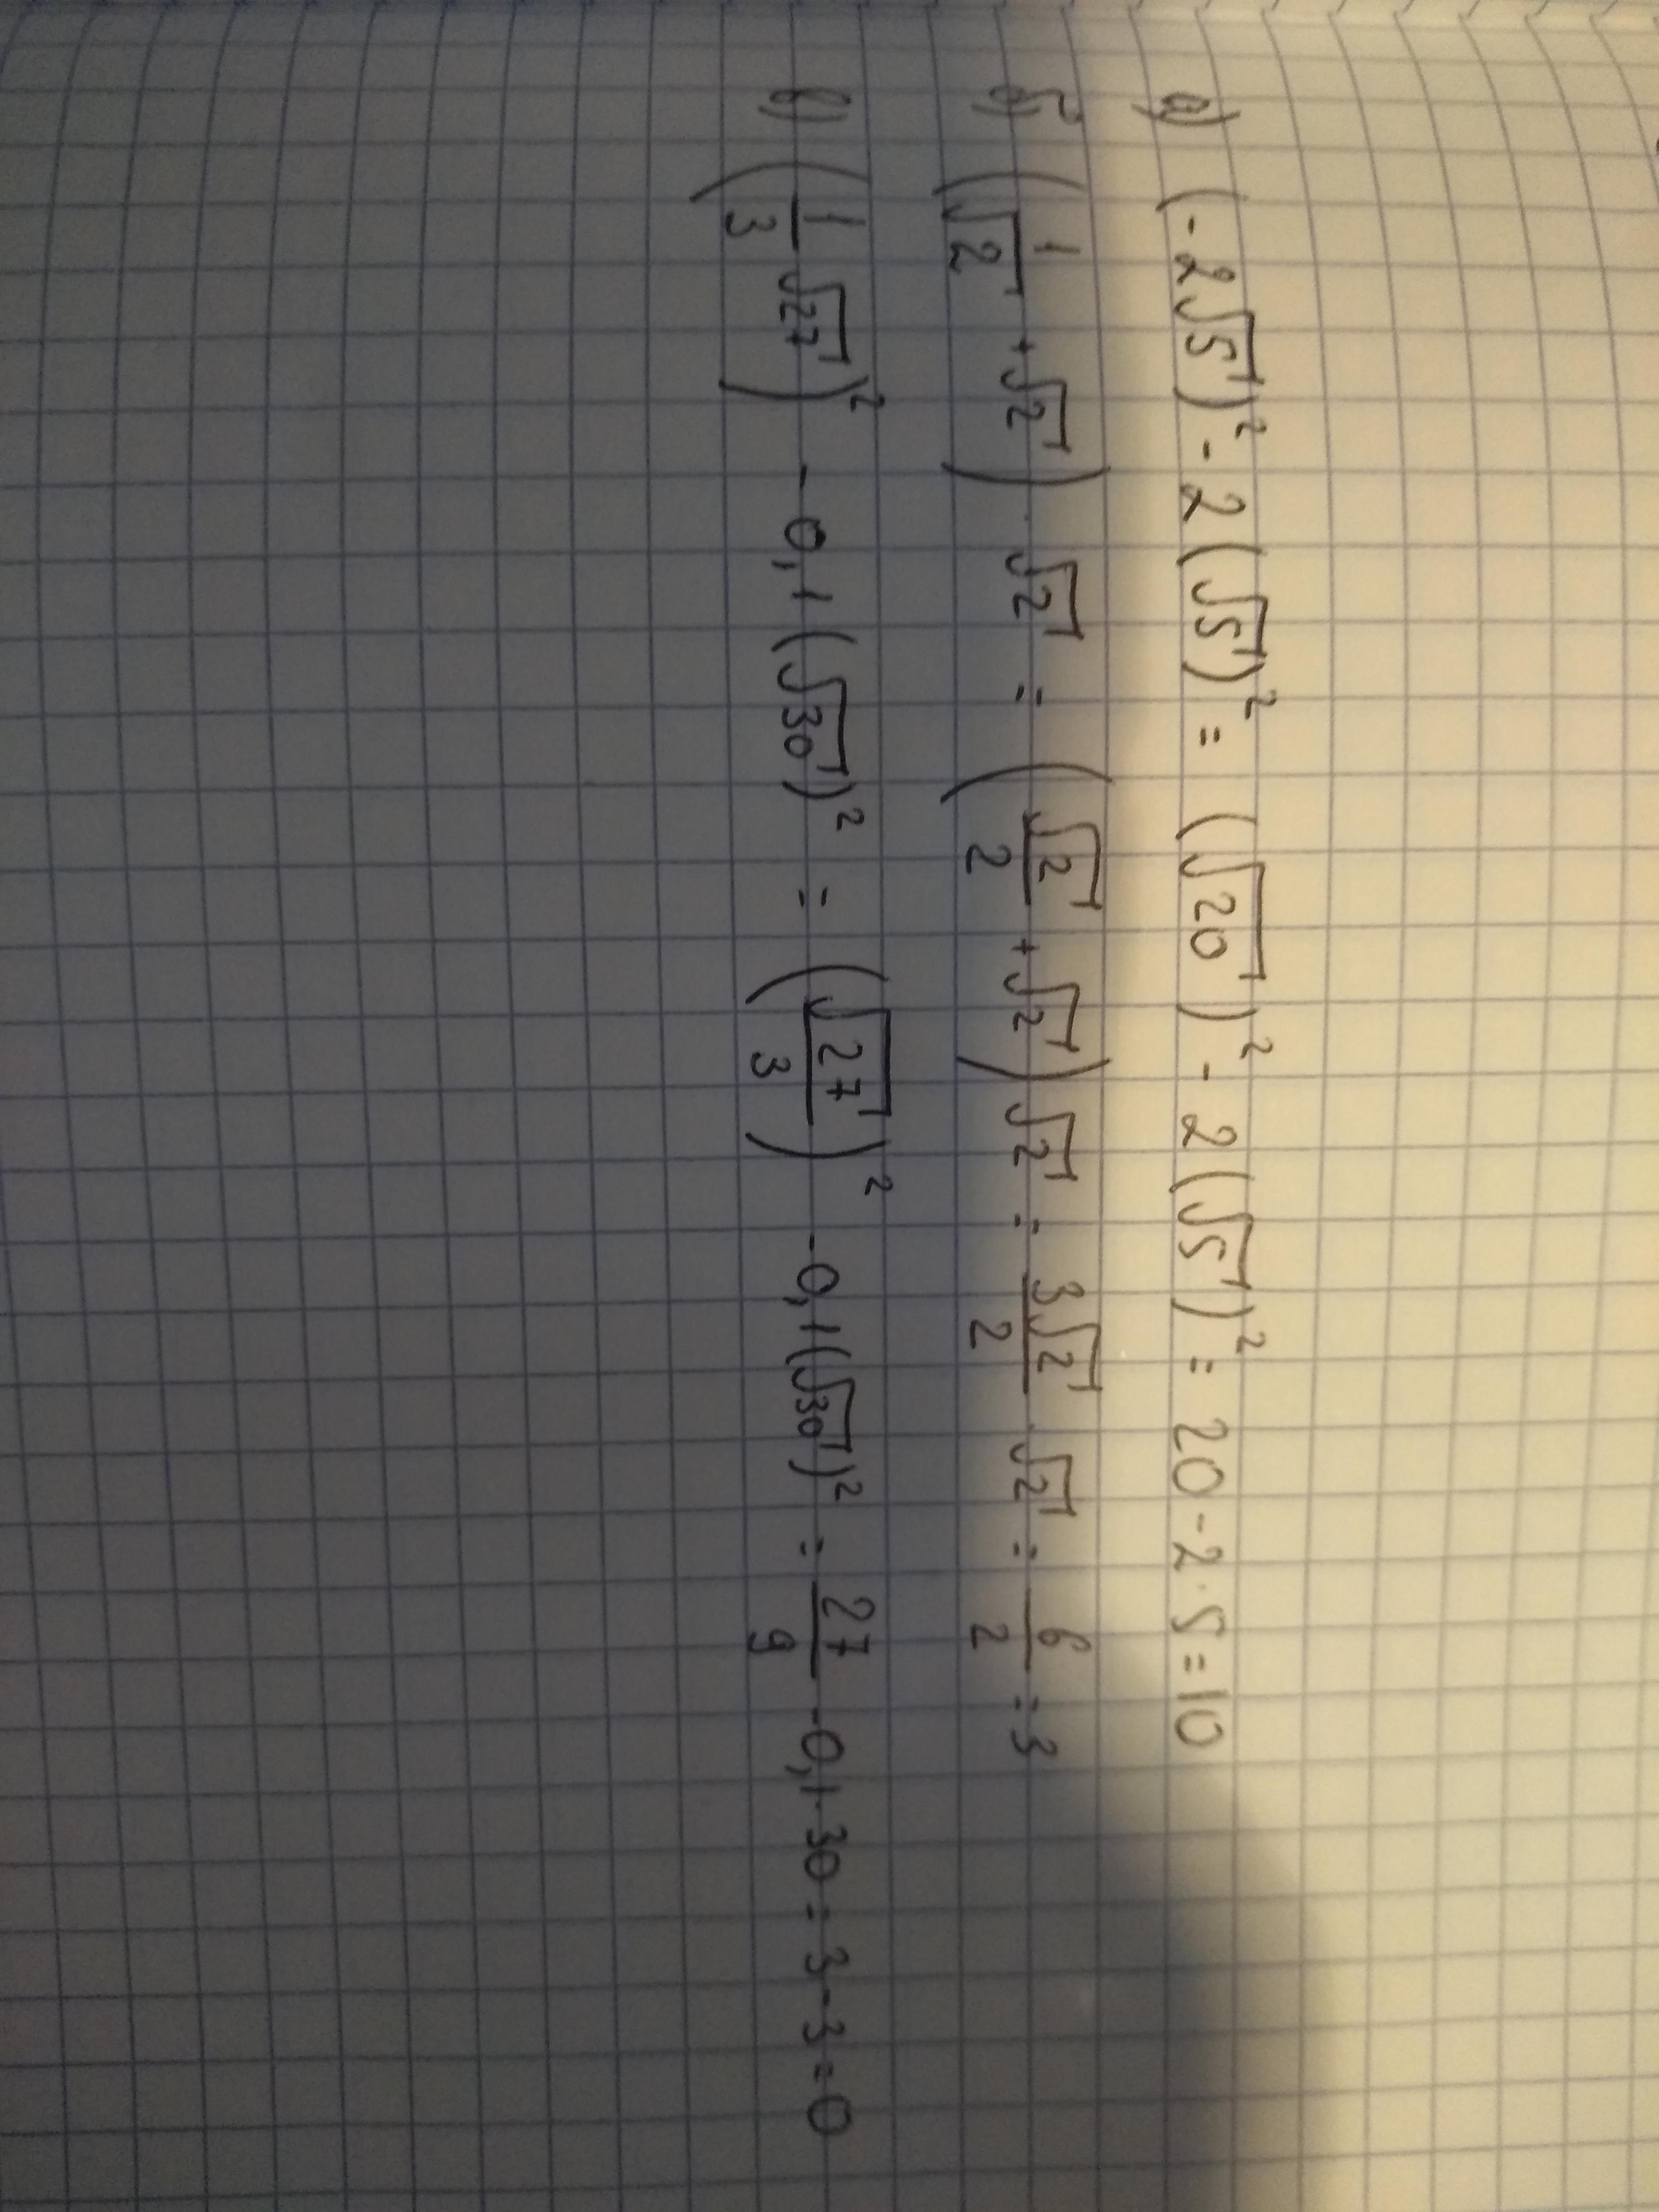 а) (-2√5)² - 2(√5)² = (√20)² - 2(√5)² = 20 - 2 · 5 = 10
б) (1/√2 + √2) · √2 = (√2/2 + √2) √2 = 3√2/2 · √2 = 6/2 = 3
в) (1/3 √27)² - 0,1(√30)² = (√27/3)² - 0,1(√30)² = 27/9 - 0,1 · 30 = 3 - 3 = 0